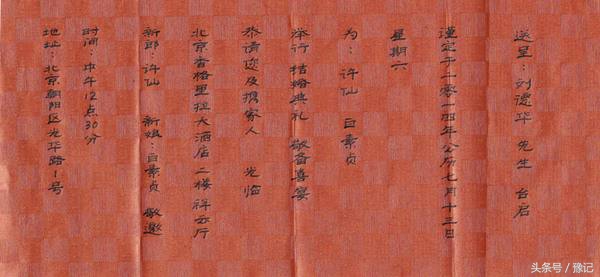 送呈：刘德华 先生 台启
谨定于二零一四年公历七月十三日
星期六
为：许仙 白素贞
举行 结婚典礼 敬备喜宴
恭请您及携家人 光临
北京香格里拉大酒店二楼祥云厅
新郎：许仙 新娘：白素贞 敬邀
时间：中午12点30分
地址：北京朝阳区光华路1号
头条号/豫记